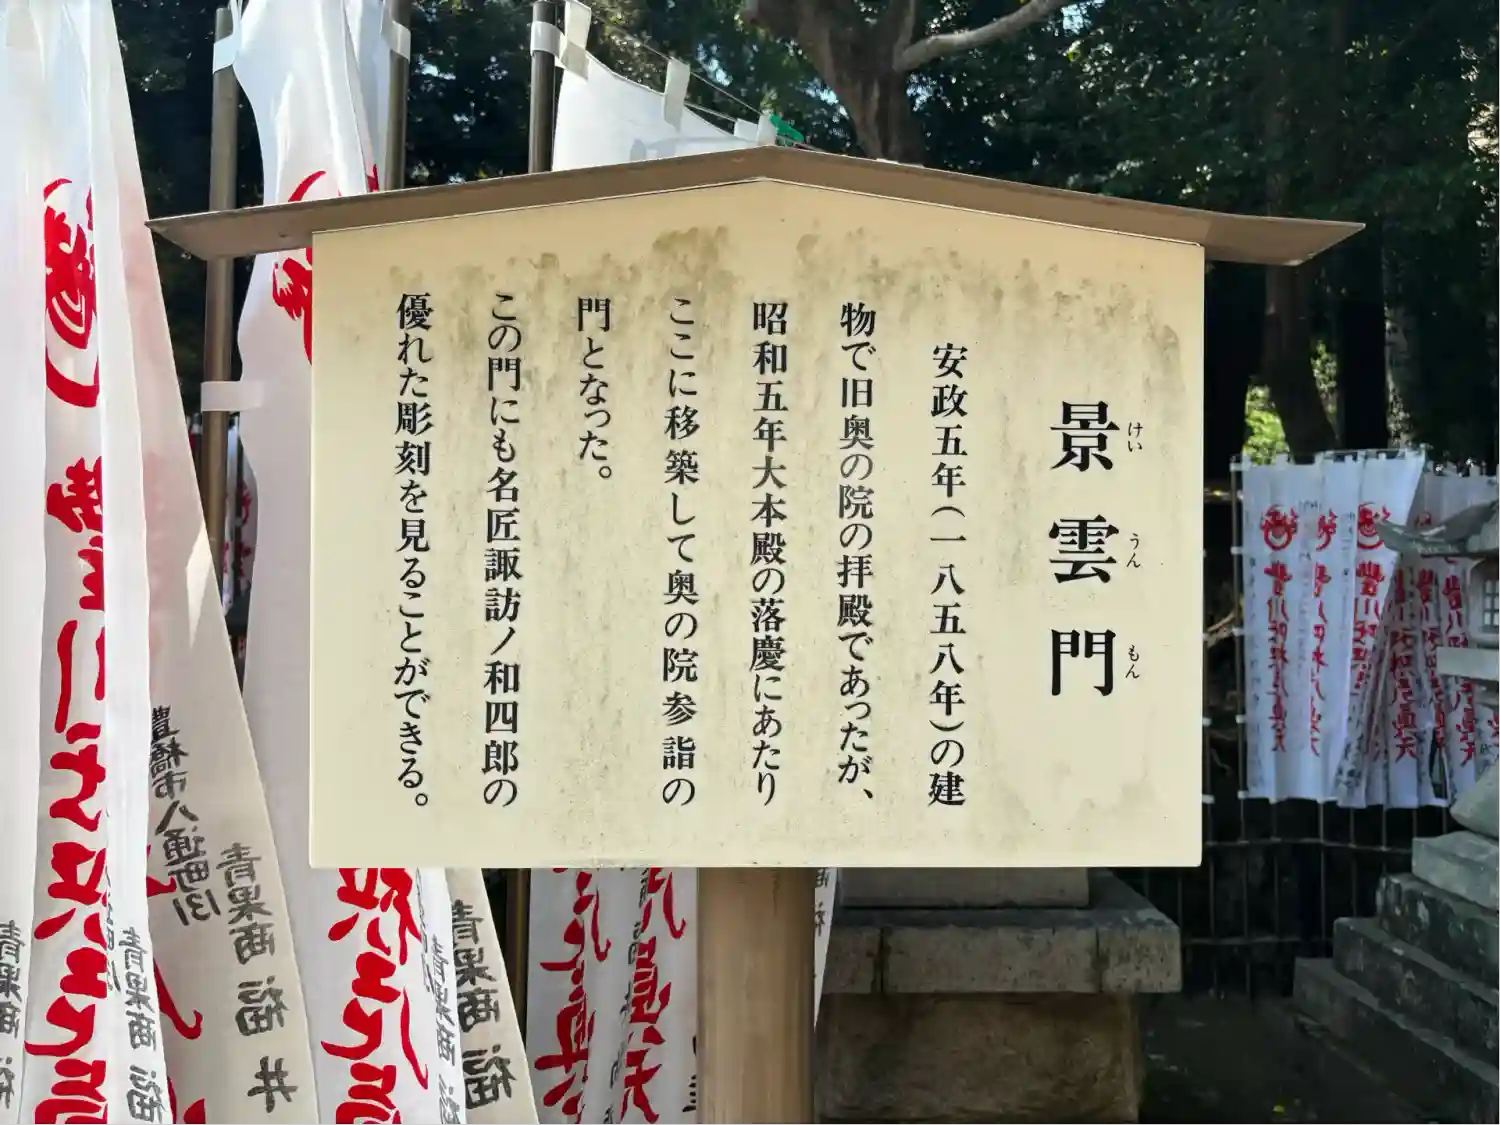 景雲門
けいうんもん
安政五年(一八五八年)の建
物で旧奥の院の拝殿であったが、
昭和五年大本殿の落慶にあたり
ここに移築して奥の院参詣の
門となった。
この門にも名匠諏訪ノ和四郎の
優れた彫刻を見ることができる。
豊橋市八通町131
青果商 福井
青果商 福
青果商 福
青果商